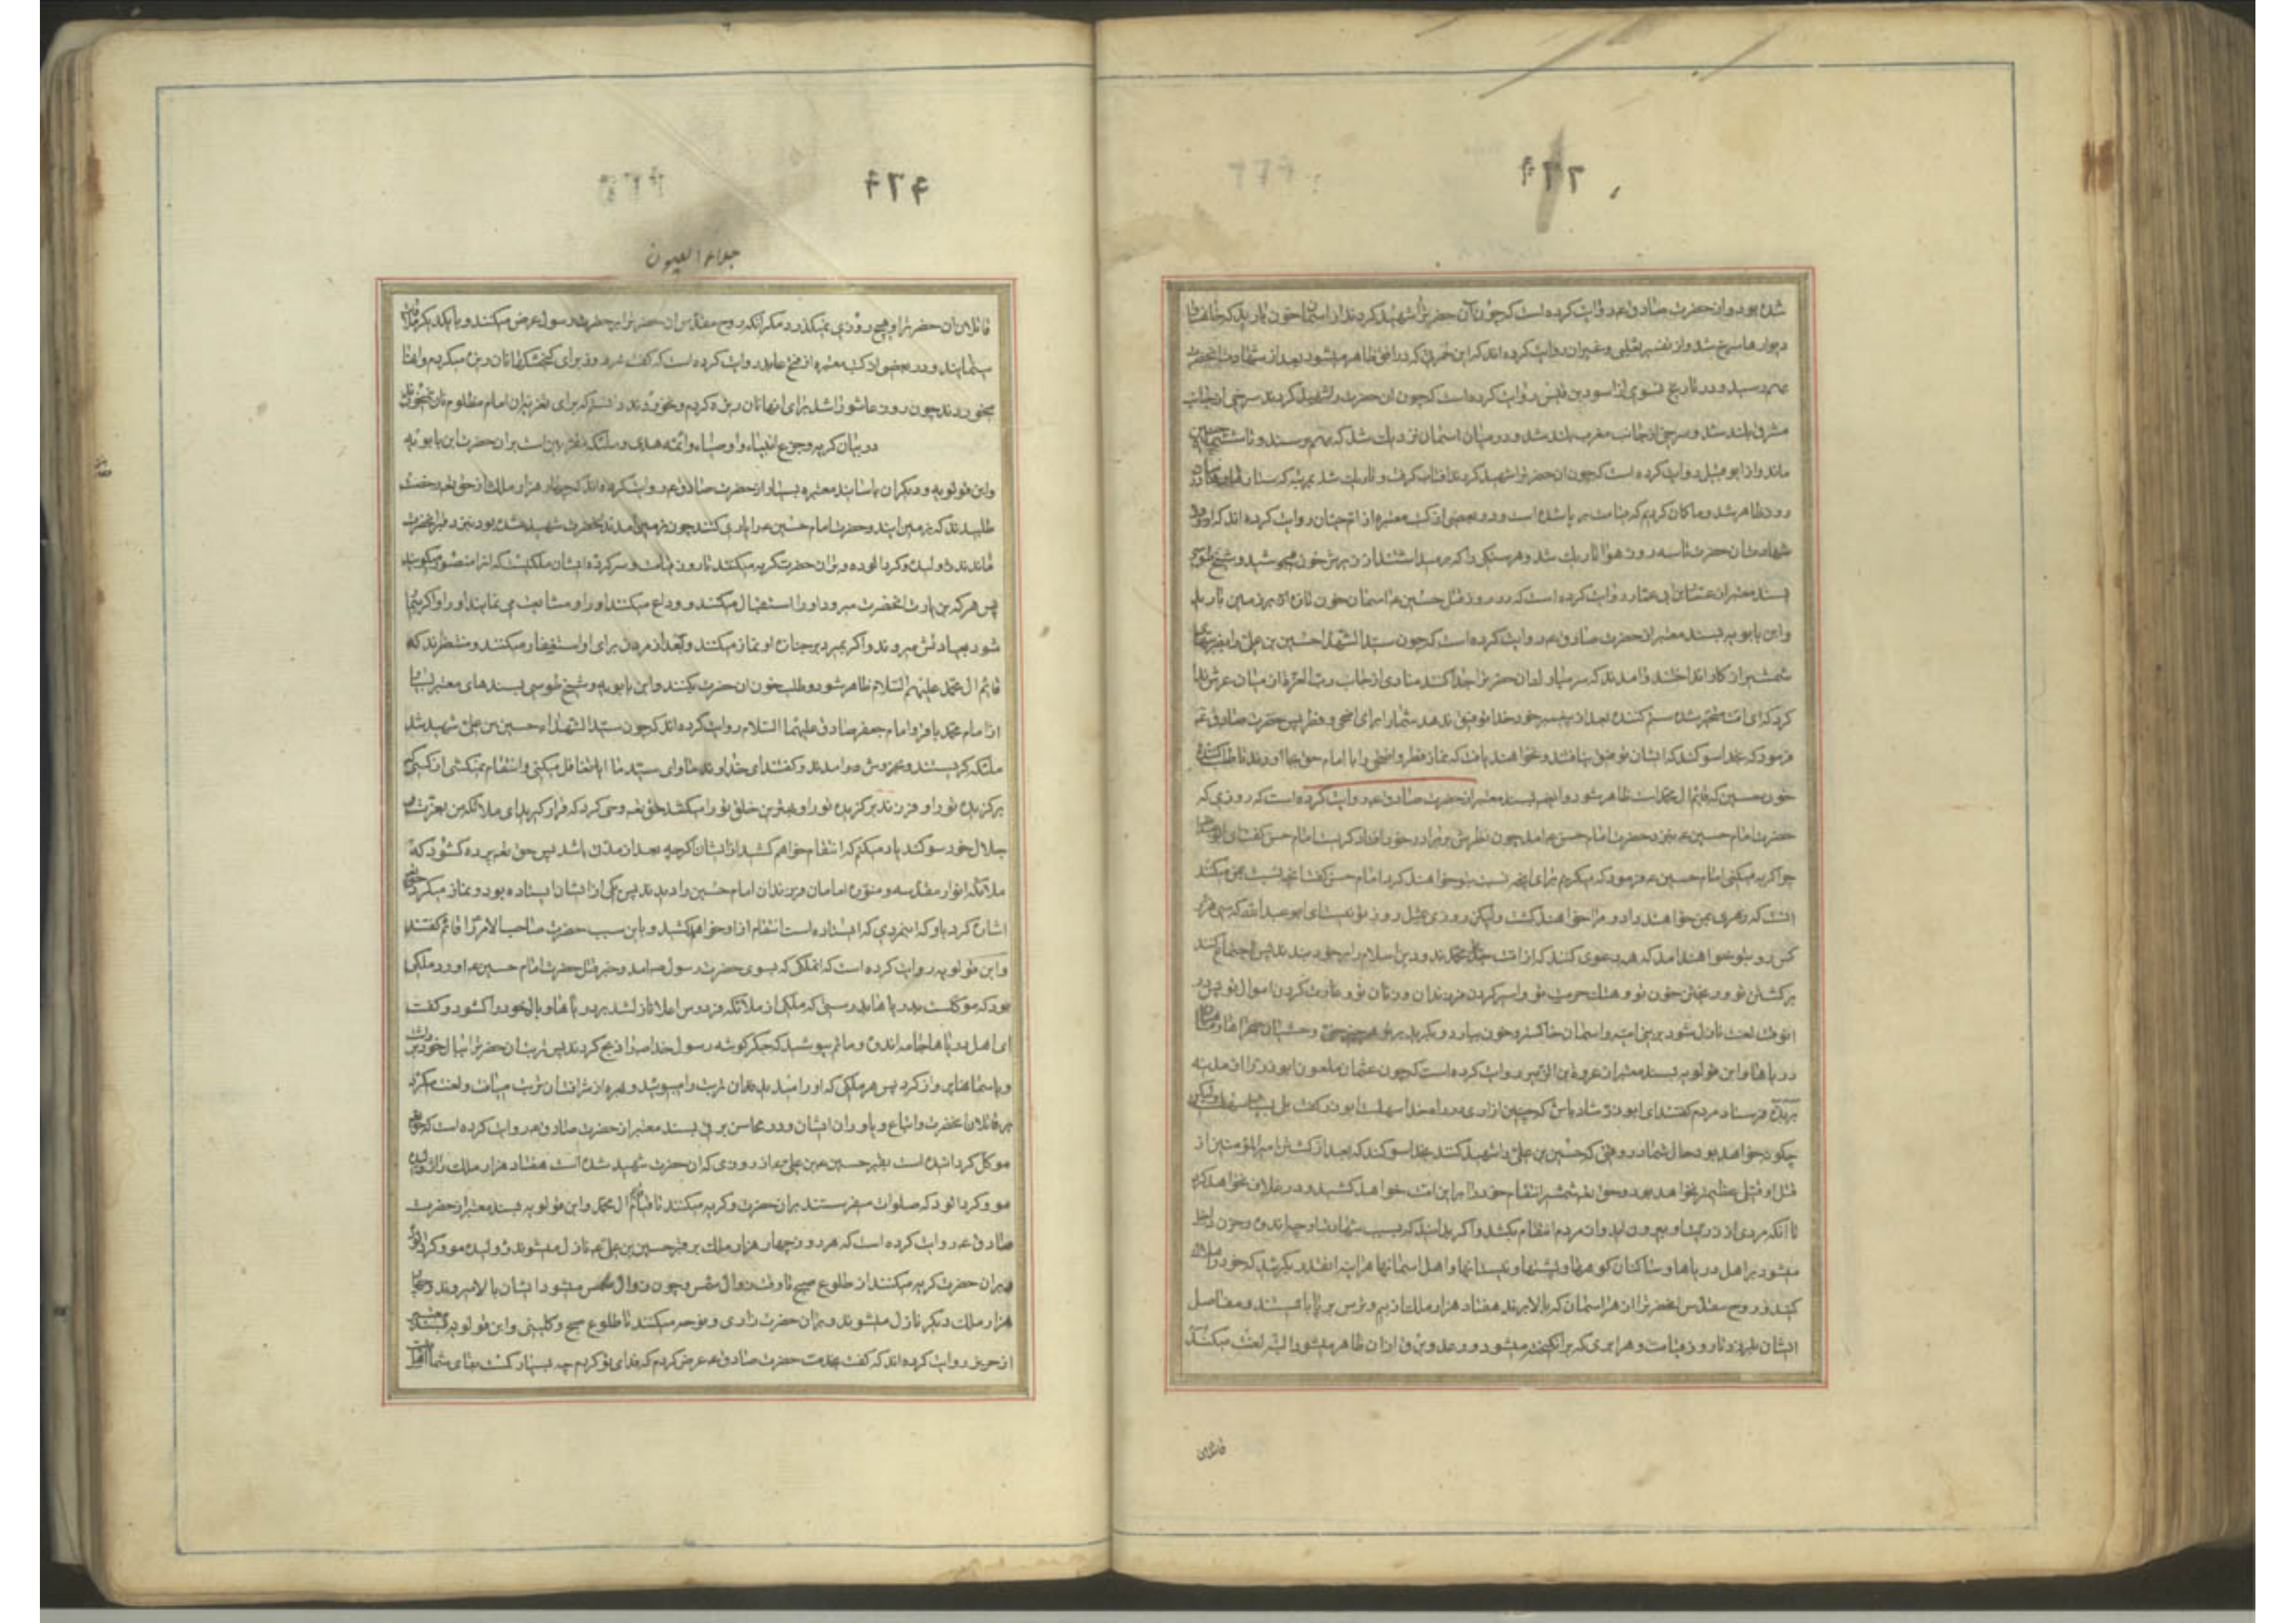 شده بود و از حضرت صادق ع روایت کرده است که چون آن حضرت را شهید کردند از آسمان خون بارید که
دیوارها سرخ شد و از تفسیر ثعلبی و غیر آن روایت کرده اند که این حمرتی که در افق ظاهر میشود بعد از شهادت آنحضرت
بهم رسید و در تاریخ نسوی از اسود بن قیس روایت کرده است که چون آن حضرت را شهید کردند سرخی از جانب
مشرق بلند شد و سرخی از جانب مغرب بلند شد و در میان آسمان نزدیک شد که بهم رسند و تا ششماه چنین
ماند و از ابو قبیل روایت کرده است که چون آن حضرت را شهید کردند آفتاب گرفت و تاریک شد بمرتبه که ستارها
روز ظاهر شد و ما گمان کردیم که قیامت بر پا شده است و در بعضی از کتب معتبره از ام حیان روایت کرده اند که از روز
شهادت آن حضرت تا سه روز هوا تاریک شد و هر سنگی را که بر میداشتند از زیرش خون میجوشید و شیخ طوسی
بسند معتبر از عمار بن ابی عمار روایت کرده است که در روز قتل حسین ع آسمان خون تازه بر زمین بارید
و ابن بابویه بسند معتبر از حضرت صادق ع روایت کرده است که چون سید الشهدا حسین بن علی را بضرب
شمشیر از کار انداختند و آمدند که سر مبارک آن حضرت را جدا کنند منادی از جانب رب العزة از میان عرش ندا
کرد که ای امت متحیر شده ستم کننده بعد از پیغمبر خود خدا توفیق ندهد شما را برای اضحی و فطر پس حضرت صادق ع
فرمود که بخدا سوگند که ایشان توفیق نیافتند و نخواهند یافت که نماز فطر و اضحی را با امام حق بجا آورند تا طلب کننده
خون حسین که قائم آل محمد است ظاهر شود و ایضا بسند معتبر از حضرت صادق ع روایت کرده است که روزی که
حضرت امام حسین ع بنزد حضرت امام حسن ع آمد چون نظرش بر برادر خود افتاد گریست امام حسن گفت ای
چرا گریه میکنی امام حسین ع فرمود که میگریم برای آنچه نسبت بتو خواهند کرد امام حسن گفت آنچه نسبت بمن میکنند
آنست که زهری بمن خواهند داد و مرا خواهند کشت ولیکن روزی مثل روز تو نیست ای ابو عبد الله که سی هزار
کس رو بتو خواهند آمد که همه دعوی کنند که از امت جد تو محمدند و دین اسلام را بر خود بندند پس اجتماع کنند
بر کشتن تو و ریختن خون تو و هتک حرمت تو و اسیر کردن فرزندان و زنان تو و غارت کردن اموال تو پس در
آنوقت لعنت نازل شود بر بنی امیه و آسمان خاکستر و خون ببارد و بگرید بر تو هر چیزی حتی وحشیان صحراها و ماهیان
دریاها و ابن قولویه بسند معتبر از عروة بن الزبیر روایت کرده است که چون عثمان ملعون ابوذر را از مدینه
بربذه فرستاد مردم گفتند ای ابوذر شاد باش که چنین آزاری در راه خدا سهلست ابوذر گفت بلی
چگونه خواهد بود حال شما در وقتی که حسین بن علی را شهید کنند بخدا سوگند که بعد از کشتن امیر المؤمنین از
قتل او قتلی عظیمتر نخواهد بود و حق تعالی شمشیر انتقام خود را بر این امت خواهد کشید و در غلاف نخواهد کرد
تا آنکه مردی از ذریت او بیرون آید و از مردم انتقام بکشد و اگر بدانید که بسبب شهادت او چه اندوه و حزن داخل
میشود بر اهل دریاها و ساکنان کوهها و بیشها و نیستانها و اهل آسمانها هر آینه آنقدر بگریید که خود را هلاک
کنید و روح مقدس آنحضرت را از هر آسمان که بالا برند هفتاد هزار ملک از بیم و ترس بر پا بایستند و مفاصل
ایشان بلرزد تا روز قیامت و هر ابری که بر انگیخته میشود و رعد و برق از آن ظاهر میشود البته لعنت میکنند
قاتلان
جلاء العیون
قاتلان آن حضرت را و هیچ روزی نمیگذرد مگر آنکه روح مقدس آن حضرت را بر حضرت رسول عرض میکنند و با یکدیگر ملاقات
مینمایند و در بعضی از کتب معتبره از فتح عابد روایت کرده است که گفت هر روز برای گنجشکها نان ریزه میکردیم و آنها
میخوردند چون روز عاشورا شد برای آنها نان ریزه کردیم و نخوردند دانستم که برای تعزیه آن امام مظلوم نان نمیخورند
در بیان گریه و جزع انبیاء و اوصیاء و ائمه هدی و ملئکه مقربین است بر آن حضرت ابن بابویه
و ابن قولویه و دیگران باسانید معتبره بسیار از حضرت صادق ع روایت کرده اند که چهار هزار ملک از حق تعالی رخصت
طلبیدند که بزمین آیند و حضرت امام حسین ع را یاری کنند چون بزمین آمدند آنحضرت شهید شده بود نزد قبر آنحضرت
ماندند ژولیده و گرد آلوده و بر آن حضرت گریه میکنند تا روز قیامت و سرکرده ایشان ملکیست که او را منصور میگویند
پس هر که بزیارت آنحضرت میرود او را استقبال میکنند و وداع میکنند او را و مشایعت می نمایند او را و اگر بیمار
شود بعیادتش میروند و اگر بمیرد بر جنازه او نماز میکنند و بعد از مردن برای او استغفار میکنند و منتظرند که
قائم آل محمد علیهم السلام ظاهر شود و طلب خون آن حضرت بکنند و ابن بابویه و شیخ طوسی بسندهای معتبر بسیار
از امام محمد باقر و امام جعفر صادق علیهما السلام روایت کرده اند که چون سید الشهداء حسین بن علی شهید شد
ملئکه گریستند و بخروش در آمدند و گفتند ای خداوند ما و ای سید ما آیا تغافل میکنی و انتقام نمیکشی از کسی که
برگزیده تو را و فرزند برگزیده تو را و بهترین خلق تو را میکشد حق تعالی وحی کرد که قرار گیرید ای ملائکه من بعزت و
جلال خود سوگند یاد میکنم که انتقام خواهم کشید از ایشان گرچه بعد از مدتی باشد پس حق تعالی پرده گشود که
ملائکه انوار مقدسه و منوره امامان فرزندان امام حسین را دیدند پس یکی از ایشان ایستاده بود و نماز میکرد
اشاره کرد باو که این مردی که ایستاده است انتقام از او خواهم کشید و باین سبب حضرت صاحب الامر را قائم گفتند
و ابن قولویه روایت کرده است که آنملکی که بسوی حضرت رسول ص آمد و خبر قتل حضرت امام حسین ع آورد ملکی
بود که موکلست بدریاها بدرستی که ملکی از ملائکه فردوس اعلا نازل شد بر دریاها و بال خود را گشود و گفت
ای اهل دریاها جامه اندوه و ماتم بپوشید که جگر گوشه رسول خدا ص را ذبح کردند پس تربت آن حضرت را ببال خود
و باسمانها پرواز کرد پس هر ملکی که او را میدید آن تربت را میبوئید و بهره از شرافت آن تربت مییافت و لعنت میکرد
بر قاتلان آنحضرت و اتباع و یاوران ایشان و در محاسن برقی بسند معتبر از حضرت صادق ع روایت کرده است که حق تعالی
موکل گردانیده است بقبر حسین بن علی ع از روزی که آن حضرت شهید شده است هفتاد هزار ملک را ژولیده
مو و گرد آلود که صلوات میفرستند بر آن حضرت و گریه میکنند تا قیام قائم آل محمد و ابن قولویه بسند معتبر از حضرت
صادق ع روایت کرده است که هر روز چهار هزار ملک بر قبر حسین بن علی ع نازل میشوند ژولیده مو و گرد آلود
و بر آن حضرت گریه میکنند از طلوع صبح تا وقت زوال شمس و چون زوال شمس میشود ایشان بالا میروند و چهار
هزار ملک دیگر نازل میشوند و بر آن حضرت زاری و نوحه میکنند تا طلوع صبح و کلینی و ابن قولویه بسند معتبر
از حریز روایت کرده اند که گفت بخدمت حضرت صادق ع عرض کردم که فدای تو گردم چه بسیار کمست بقای شما اهل بیت